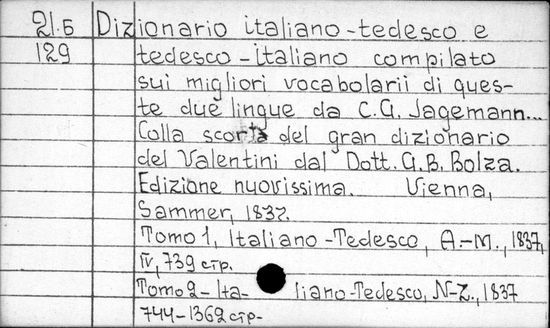 21.5 Dizionario italiano-tedesco e
129 tedesco-italiano compilato
sui migliori vocabolarii di ques-
te due lingue da C.G. Jagemann...
Colla scorta del gran dizionario
del Valentini dal Dott. G.B. Bolza.
Edizione nuovissima. Vienna,
Sammer, 1837.
Tomo 1, Italiano-Tedesco, A.-M., 1837,
IV, 739 стр.
Tomo 2- Ita- liano-Tedesco, N-Z., 1837
744-1362 стр-